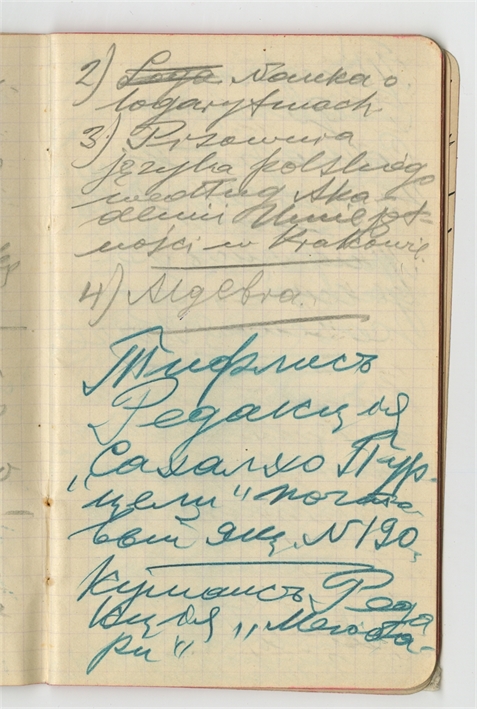 2) Loga Nauka o
logarytmach
3) Pisownia
języka polskiego
według Aka-
demii Umiejęt-
ności w Krakowie.
4) Algebra.
Тифлисъ
Редакція
„Сахалхо Пур-
цели" почто-
вый ящ. N 190.
Кутаисъ. Реда
кція „Мегоба-
ри"